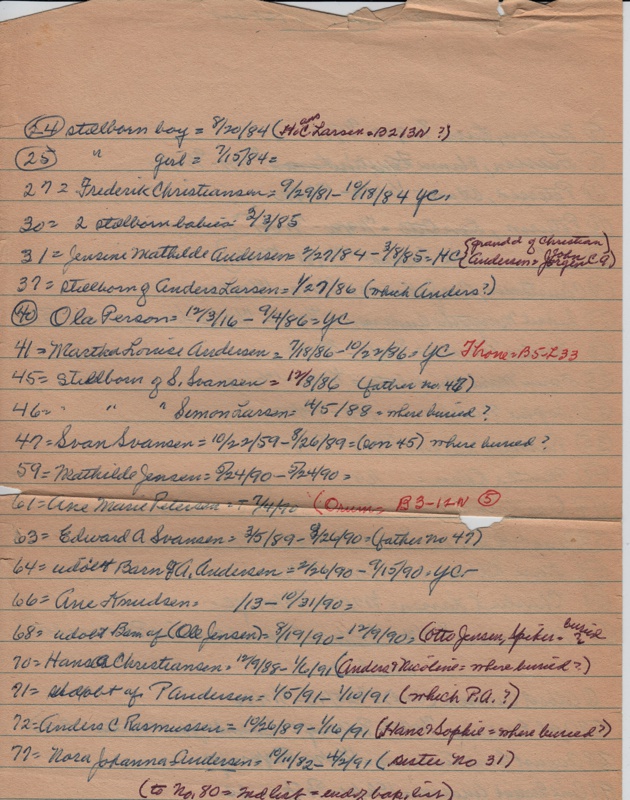 24 stillborn boy = 8/20/84 (H. and C Larsen = B213N ?)
25 " girl = 7/15/84 =
27 = Frederik Christiansen = 9/29/81 - 10/18/84 YC.
30 = 2 stillborn babies 3/3/85
31 = Jensine Mathilde Andersen = 2/27/84 - 3/8/85 = HC (grandd of Christian Andersen = John Jorgen C.A)
37 = stillborn of Anders Larsen = 1/27/86 (which Anders?)
40 Ola Person = 12/3/16 - 9/4/86 = YC
41 = Martha Louise Andersen = 7/18/86 - 10/22/86 = YC Throne = B5-L33
45 = stillborn of S. Svansen = 12/8/86 (father no. 47)
46 = " " " Simon Larsen = 4/5/88 = where buried?
47 = Svan Svansen = 10/22/59 - 8/26/89 = (son 45) where buried?
59 = Mathilde Jensen = 5/24/90 - 5/24/90 =
61 = Ane Marie Petersen = + 7/4/90 (Orum = B3-12N 5
63 = Edward A Svansen = 3/5/89 - 8/26/90 = (father no 47)
64 = udöbt Barn of A. Andersen = 2/26/90 - 9/15/90 = YC -
66 = Ane Knudsen = /13 - 10/31/90 =
68 = udöbt Barn of (Ole Jensen) = 8/19/90 - 12/9/90 = (Otto Jensen, Spiker = buried ?
70 = Hans C Christiansen = 12/9/88 - 1/6/91 (Anders & Nicoline = where buried?)
71 = udobt of P Andersen = 1/5/91 - 1/10/91 (which P.A.?)
72 = Anders C Rasmussen = 10/26/89 - 1/16/91 (Hans & Sophie = where buried?)
77 = Nora Johanna Andersen = 10/11/82 - 4/2/91 (sister no 31)
(to No. 80 = 2nd list = end of bap. list)